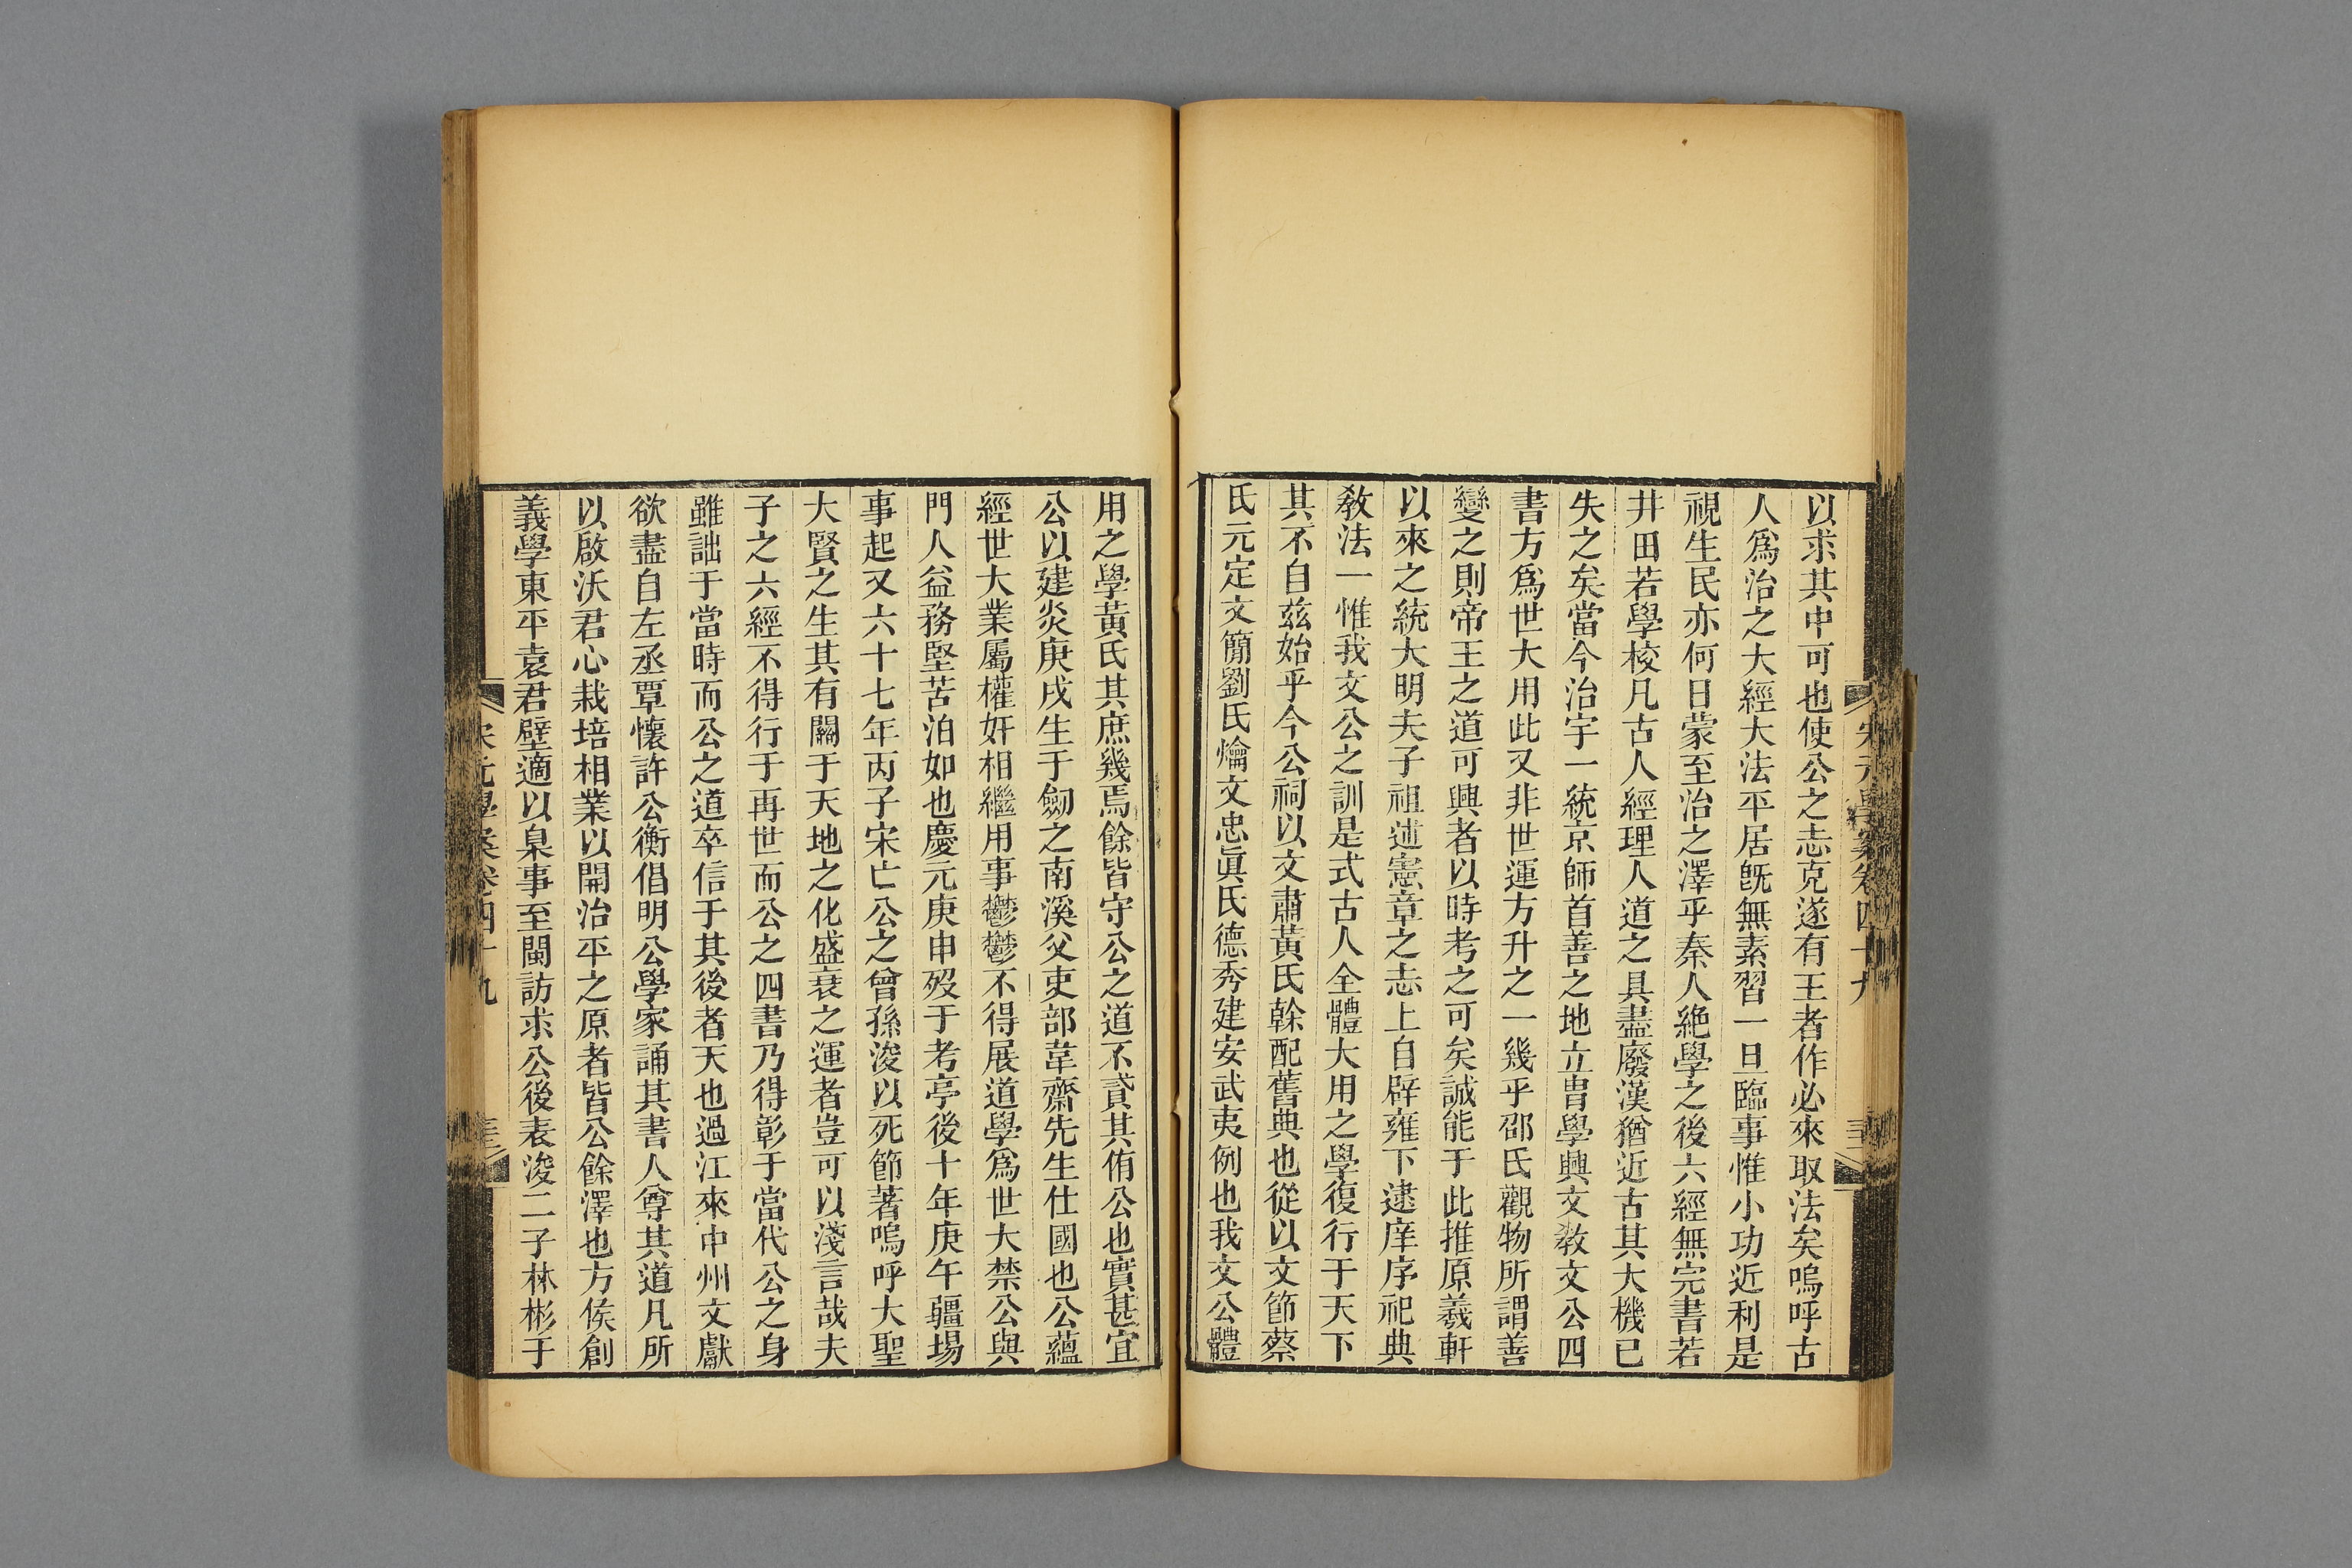 以求其中可也使公之志克遂有王者作必來取法矣嗚呼古
人爲治之大經大法平居旣無素習一旦臨事惟小功近利是
視生民亦何日蒙至治之澤乎秦人絕學之後六經無完書若
井田若學校凡古人經理人道之具盡廢漢猶近古其大機已
失之矣當今治宇一統京師首善之地立冑學興文敎文公四
書方爲世大用此又非世運方升之一幾乎邵氏觀物所謂善
變之則帝王之道可興者以時考之可矣誠能于此推原羲軒
以來之統大明夫子祖述憲章之志上自辟雍下逮庠序祀典
敎法一惟我文公之訓是式古人全體大用之學復行于天下
其不自茲始乎今公祠以文肅黃氏榦配舊典也從以文節蔡
氏元定文簡劉氏爚文忠眞氏德秀建安武夷例也我文公體
宋元學案卷四十九
用之學黃氏其庶幾焉餘皆守公之道不貳其侑公也實甚宜
公以建炎庚戌生于劒之南溪父吏部韋齋先生仕國也公蘊
經世大業屬權奸相繼用事鬱鬱不得展道學爲世大禁公與
門人益務堅苦泊如也慶元庚申歿于考亭後十年庚午疆場
事起又六十七年丙子宋亡公之曾孫浚以死節著嗚呼大聖
大賢之生其有關于天地之化盛衰之運者豈可以淺言哉夫
子之六經不得行于再世而公之四書乃得彰于當代公之身
雖詘于當時而公之道卒信于其後者天也過江來中州文獻
欲盡自左丞覃懷許公衡倡明公學家誦其書人尊其道凡所
以啟沃君心栽培相業以開治平之原者皆公餘澤也方侯創
義學東平袁君壁適以臬事至閩訪求公後表浚二子林彬于
宋元學案卷四十九